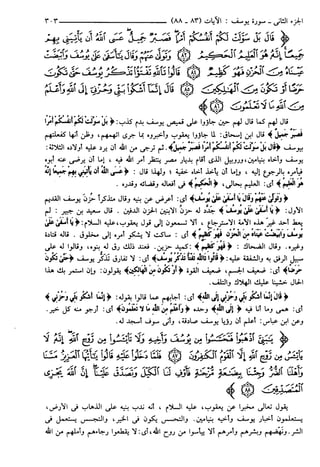 الجزء الثاني - سورة يوسف : الآيات (٨٣ - ٨٨) ٣٠٣
﴿ قَالَ بَلْ سَوَّلَتْ لَكُمْ أَنفُسُكُمْ أَمْرًا فَصَبْرٌ جَمِيلٌ عَسَى اللَّهُ أَن يَأْتِيَنِي بِهِمْ
جَمِيعًا إِنَّهُ هُوَ الْعَلِيمُ الْحَكِيمُ ﴿٨٣﴾ وَتَوَلَّى عَنْهُمْ وَقَالَ يَا أَسَفَى عَلَى يُوسُفَ وَابْيَضَّتْ
عَيْنَاهُ مِنَ الْحُزْنِ فَهُوَ كَظِيمٌ ﴿٨٤﴾ قَالُوا تَاللَّهِ تَفْتَأُ تَذْكُرُ يُوسُفَ حَتَّى تَكُونَ
حَرَضًا أَوْ تَكُونَ مِنَ الْهَالِكِينَ ﴿٨٥﴾ قَالَ إِنَّمَا أَشْكُو بَثِّي وَحُزْنِي إِلَى اللَّهِ وَأَعْلَمُ
مِنَ اللَّهِ مَا لَا تَعْلَمُونَ ﴿٨٦﴾
قال لهم كما قال لهم حين جاؤوا على قميص يوسف بدم كذب: ﴿ بَلْ سَوَّلَتْ لَكُمْ أَنفُسُكُمْ أَمْرًا
فَصَبْرٌ جَمِيلٌ ﴾ قال ابن إسحاق: لما جاؤوا يعقوب وأخبروه بما جرى اتهمهم، وظن أنها كفعلتهم
بيوسف ﴿ قَالَ بَلْ سَوَّلَتْ لَكُمْ أَنفُسُكُمْ أَمْرًا فَصَبْرٌ جَمِيلٌ ﴾. ثم ترجى من الله أن يرد عليه أولاده الثلاثة:
يوسف وأخاه بنيامين، وروبيل الذي أقام بديار مصر ينتظر أمر الله فيه ، إما أن يرضى عنه أبوه
فيأمره بالرجوع إليه ، وإما أن يأخذ أخاه خفية ، ولهذا قال : ﴿ عَسَى اللَّهُ أَن يَأْتِيَنِي بِهِمْ جَمِيعًا إِنَّهُ
هُوَ الْعَلِيمُ ﴾ أي: العليم بحالي، ﴿ الْحَكِيمُ ﴾ في أفعاله وقضائه وقدره .
﴿ وَتَوَلَّى عَنْهُمْ وَقَالَ يَا أَسَفَى عَلَى يُوسُفَ ﴾ أي: أعرض عن بنيه وقال متذكراً حزن يوسف القديم
الأول: ﴿ يَا أَسَفَى عَلَى يُوسُفَ ﴾ جدَّد له حزنُ الابنين الحزنَ الدفين . قال سعيد بن جبير : لم
يعط أحد غير هذه الأمة الاسترجاع ، ألا تسمعون إلى قول يعقوب، عليه السلام: ﴿ يَا أَسَفَى عَلَى
يُوسُفَ وَابْيَضَّتْ عَيْنَاهُ مِنَ الْحُزْنِ فَهُوَ كَظِيمٌ ﴾ أي : ساكت لا يشكو أمره إلى مخلوق . قاله قتادة
وغيره. وقال الضحاك : ﴿ فَهُوَ كَظِيمٌ ﴾: كميد حزين. فعند ذلك رق له بنوه، وقالوا له على
سبيل الرفق به والشفقة عليه: ﴿ قَالُوا تَاللَّهِ تَفْتَأُ تَذْكُرُ يُوسُفَ ﴾ أي: لا تفارق تَذَكُّر يوسف ﴿ حَتَّى تَكُونَ
حَرَضًا ﴾ أي: ضعيف الجسم، ضعيف القوة ﴿ أَوْ تَكُونَ مِنَ الْهَالِكِينَ ﴾ يقولون: وإن استمر بك هذا
الحال خشينا عليك الهلاك والتلف.
﴿ قَالَ إِنَّمَا أَشْكُو بَثِّي وَحُزْنِي إِلَى اللَّهِ ﴾ أي: أجابهم عما قالوا بقوله: ﴿ إِنَّمَا أَشْكُو بَثِّي وَحُزْنِي ﴾
أي: همي وما أنا فيه ﴿ إِلَى اللَّهِ ﴾ وحده ﴿ وَأَعْلَمُ مِنَ اللَّهِ مَا لَا تَعْلَمُونَ ﴾ أي: أرجو منه كل خير.
وعن ابن عباس: أعلم أن رؤيا يوسف صادقة، وأني سوف أسجد له.
﴿ يَا بَنِيَّ اذْهَبُوا فَتَحَسَّسُوا مِن يُوسُفَ وَأَخِيهِ وَلَا تَيْأَسُوا مِن رَّوْحِ اللَّهِ إِنَّهُ لَا
يَيْأَسُ مِن رَّوْحِ اللَّهِ إِلَّا الْقَوْمُ الْكَافِرُونَ ﴿٨٧﴾ فَلَمَّا دَخَلُوا عَلَيْهِ قَالُوا يَا أَيُّهَا الْعَزِيزُ مَسَّنَا
وَأَهْلَنَا الضُّرُّ وَجِئْنَا بِبِضَاعَةٍ مُّزْجَاةٍ فَأَوْفِ لَنَا الْكَيْلَ وَتَصَدَّقْ عَلَيْنَا إِنَّ اللَّهَ يَجْزِي
الْمُتَصَدِّقِينَ ﴿٨٨﴾
يقول تعالى مخبرا عن يعقوب، عليه السلام ، أنه ندب بنيه على الذهاب في الأرض،
يستعلمون أخبار يوسف وأخيه بنيامين. والتحسس يكون في الخير، والتجسس يستعمل في
الشر. ونَهّضهم وبشرهم وأمرهم ألا ييأسوا من روح الله، أي: لا يقطعوا رجاءهم وأملهم من الله